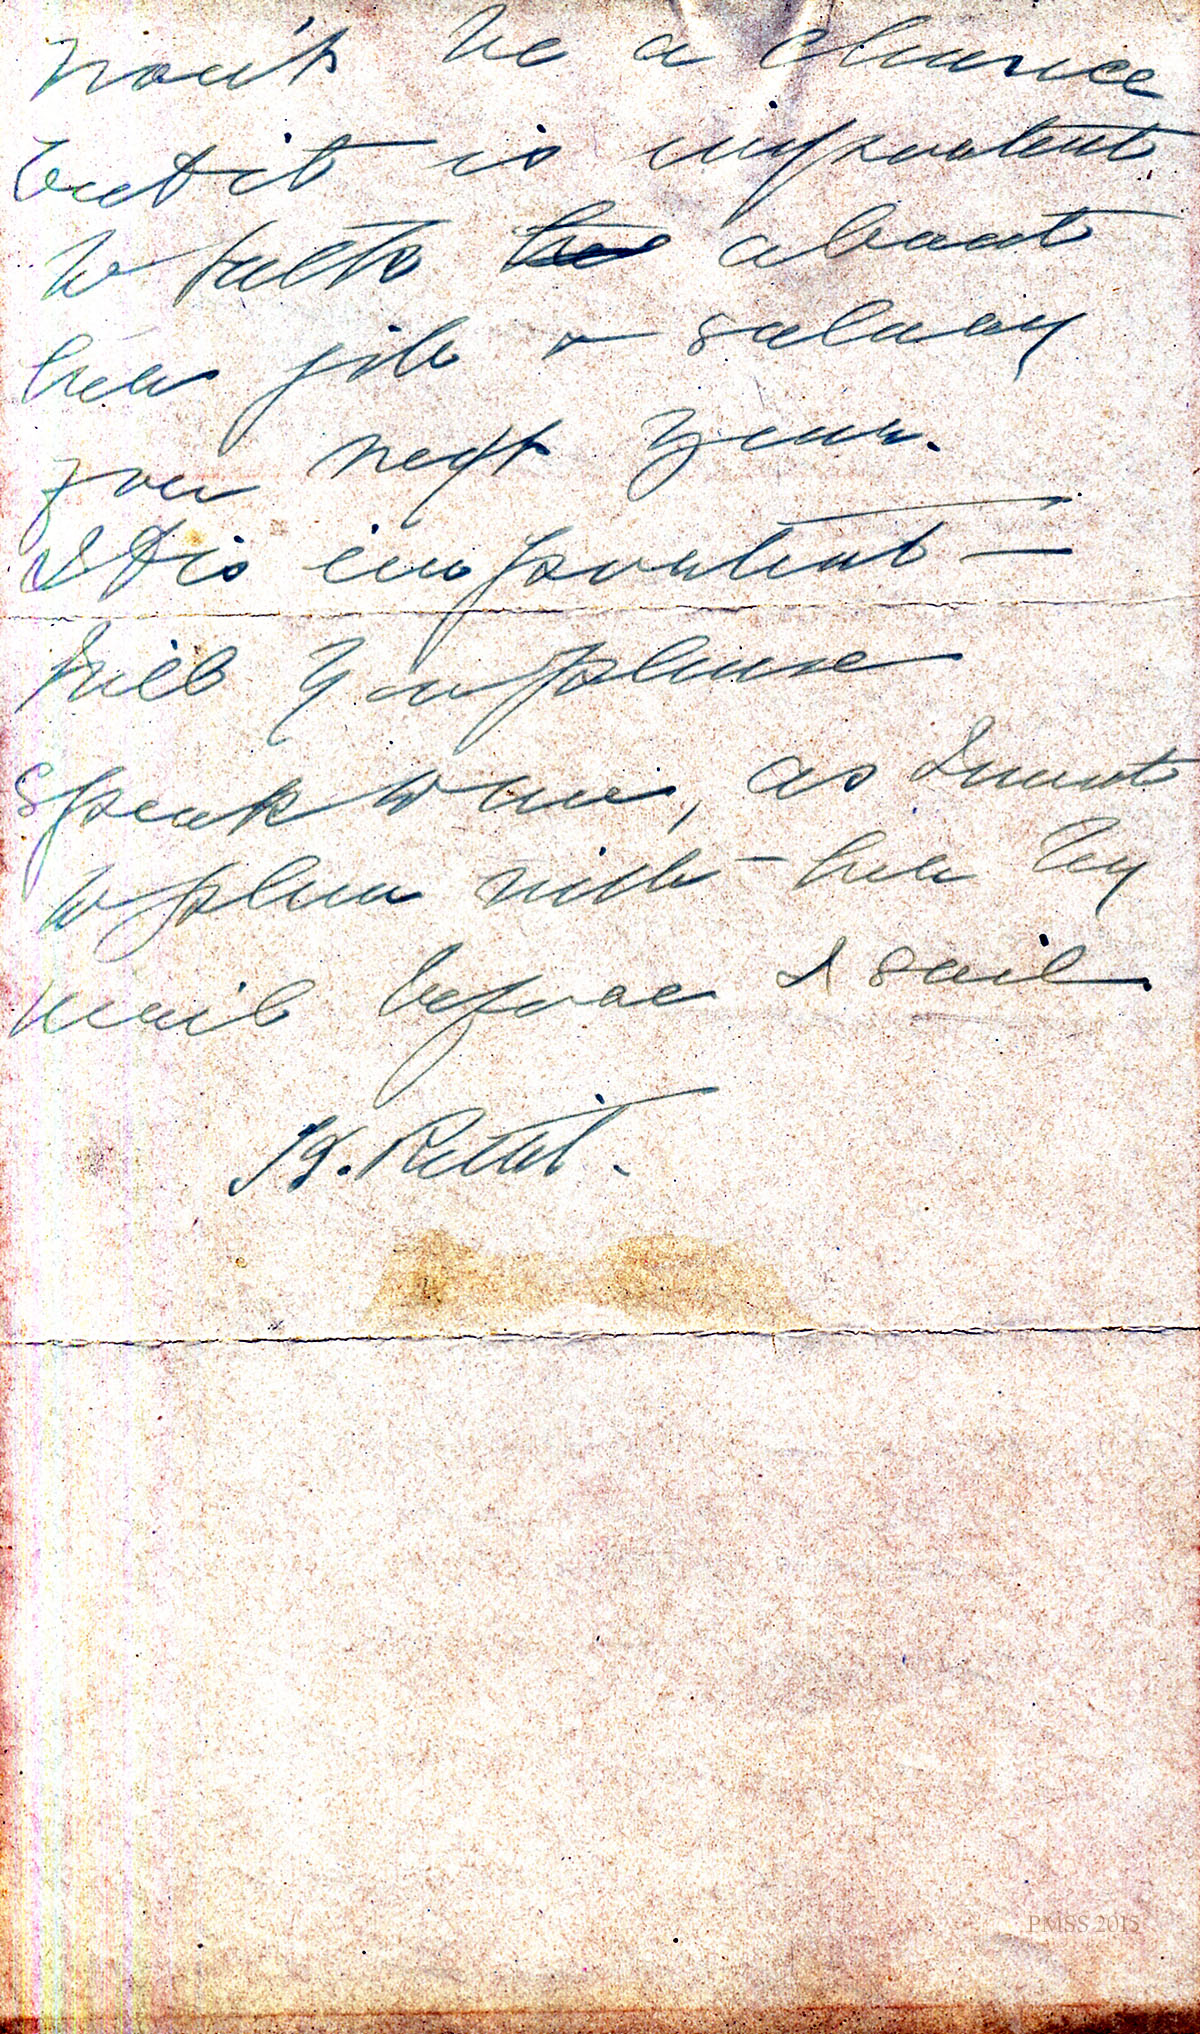 won't be a chance
but it is important
to talk about
her job & salary
for next year.
It is important —
Will you please
speak to me, as I want
to plan with her by
mail before I sail.
K. Pettit.
PMSS 2015